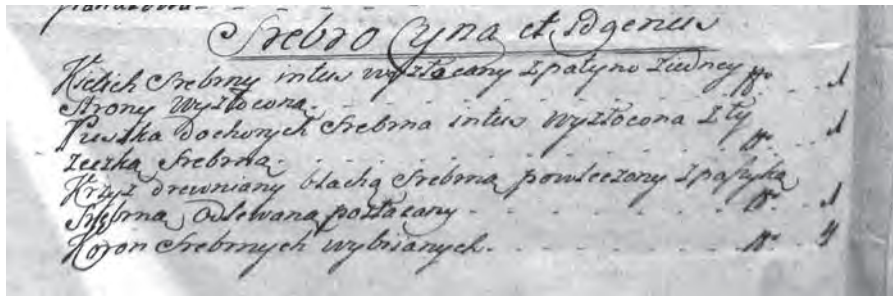 Srebro Cyna et id genus
Kielich Srebrny intus wyzłacany z patyną z iedney N° 1
Strony wyzłoconą
Puszka do chorych Srebrna intus wyzłocona z ły N° 1
żeczką Srebrną
Krzyż drewniany blachą Srebrną powleczony z pasyiką
Srebrną odlewaną pozłacany N° 1
Koron Srebrnych wybijanych N° 4